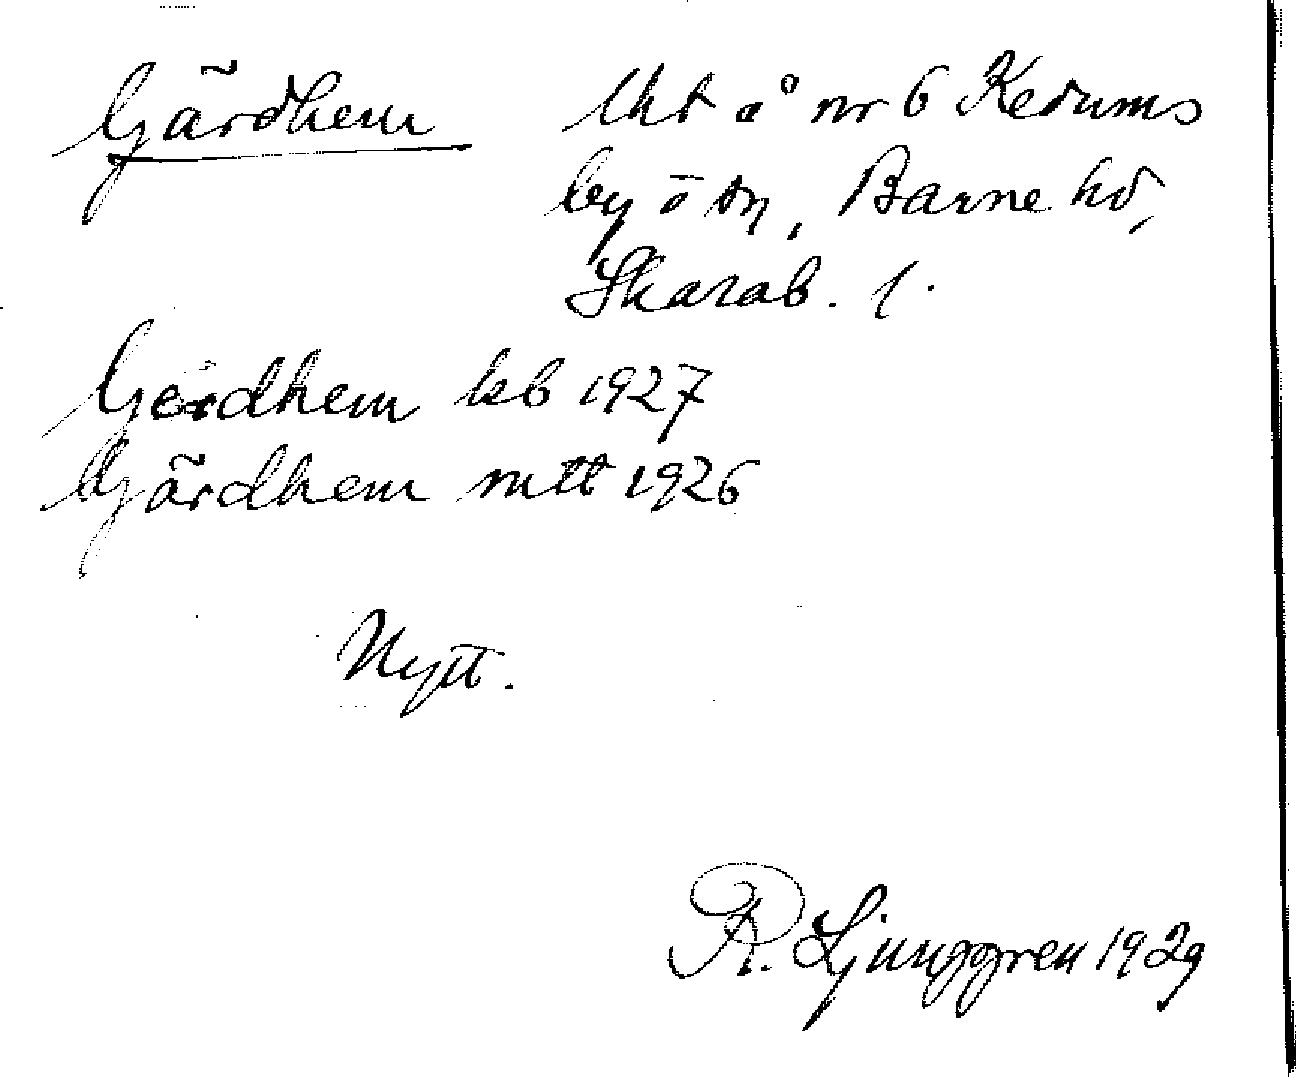 Gärdhem
Lht å nr 6 Kedums
by o sn, Barne hd,
Skarab. l.
Gerdhem kb 1927
Gärdhem mtt 1926
Nytt.
R. Ljunggren 1929